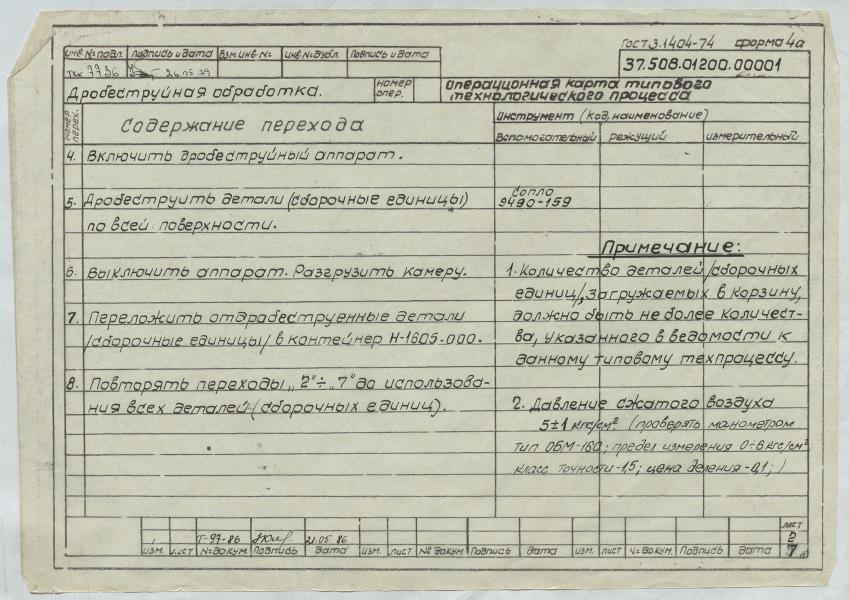 ГОСТ 3.1404-74 форма 4а
Инв.№подл. Подпись и дата Взм.инв.№ Инв.№дубл. Подпись и дата
26.05.79
37.508.01200.00001
Дробеструйная обработка.
номер опер.
Операционная карта типового
технологического процесса
номер перех.
Содержание перехода
Инструмент (код, наименование)
Вспомогательный режущий измерительный
4. Включить дробеструйный аппарат.
5. Дробеструить детали (сборочные единицы)
по всей поверхности.
Сопло
9490-159
6. Выключить аппарат. Разгрузить камеру.
7. Переложить отдрабеструенные детали
/сборочные единицы/ в контейнер Н-1605-000.
8. Повторять переходы „2"÷„7" до использова-
ния всех деталей (сборочных единиц).
Примечание:
1. Количество деталей /сборочных
единиц/, загружаемых в корзину,
должно быть не более количест-
ва, указанного в ведомости к
данному типовому техпроцессу.
2. Давление сжатого воздуха
5±1 кгс/см² (проверять манометром
тип ОБМ-160; предел измерения 0÷6 кгс/см²
класс точности-1,5; цена деления-0,1;)
лист
2
7
1 Т-97-86 21.05.86
изм. лист №докум. Подпись дата изм. лист №докум. Подпись дата изм. лист №докум. Подпись дата